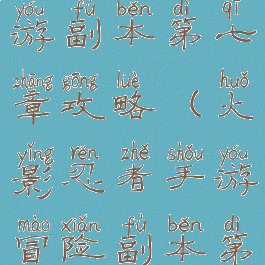 yóu fù běn dì qī
游副本第七
zhāng gōng lüè huǒ
章攻略（火
yǐng rěn zhě shǒu yóu
影忍者手游
mào xiǎn fù běn dì
冒险副本第